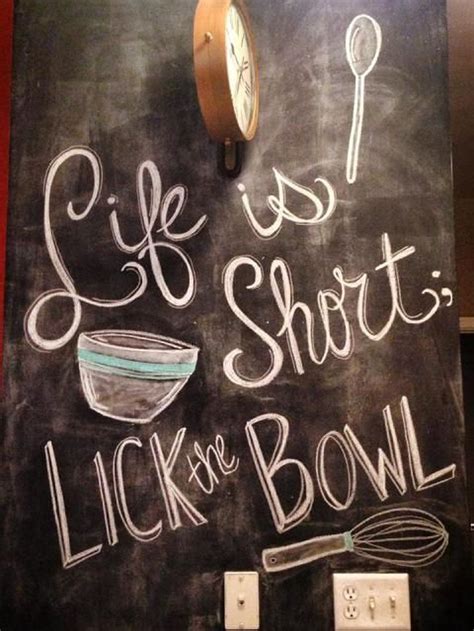 Life is
Short;
LICK the BOWL